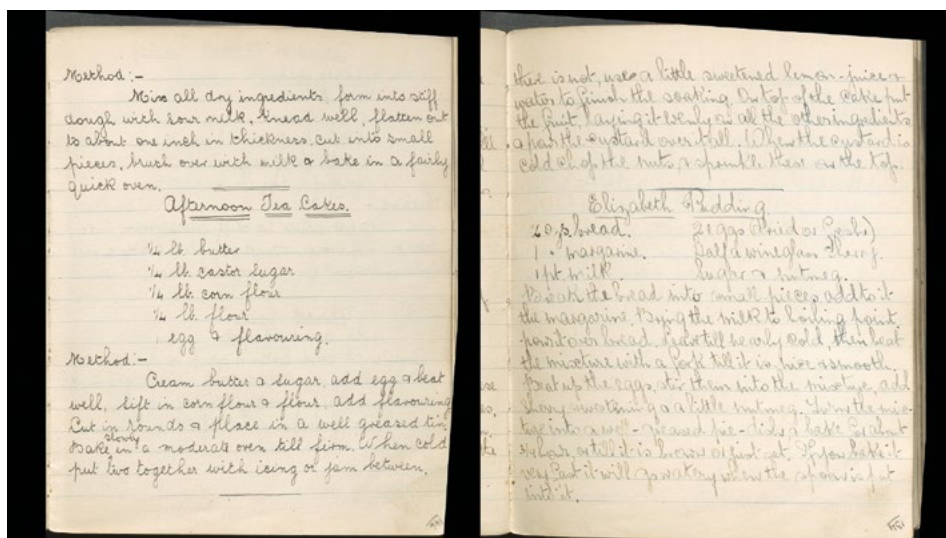 Method:-
Mix all dry ingredients, form into stiff
dough with sour milk, knead well, flatten out
to about one inch in thickness, cut into small
pieces, brush over with milk & bake in a fairly
quick oven.
Afternoon Tea Cakes.
¼ lb. butter
¼ lb. castor sugar
¼ lb. corn flour
¼ lb. flour
1 egg & flavouring.
Method:-
Cream butter & sugar, add egg & beat
well. Sift in corn flour & flour, add flavouring
Cut in rounds & place in a well greased tin,
Bake slowly in a moderate oven till firm. When cold
put two together with icing or jam between.
there is not, use a little sweetened lemon-juice &
water to finish the soaking. On top of the cake put
the fruit, laying it evenly as all the other ingredients
& pour the custard over it all. When the custard is
cold chop the nuts, & sprinkle these on the top.
Elizabeth Pudding
ozs. bread. 2 eggs (dried or fresh)
1 " margarine. Half a wineglass sherry.
1 pt. milk. Sugar & nutmeg.
Break the bread into small pieces, add to it
the margarine. Bring the milk to boiling point,
pour it over bread, leave till nearly cold, then beat
the mixture with a fork till it is nice & smooth.
Beat up the eggs, stir them into the mixture, add
sherry sweetening & a little nutmeg. Turn the mix-
ture into a well-greased pie-dish & bake for about
¾ hour, or till it is brown & just set. If you bake it
very fast it will go watery when the spoon is put
into it.